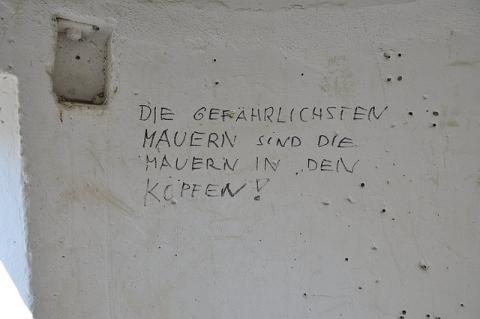 DIE GEFÄHRLICHSTEN
MAUERN SIND DIE
MAUERN IN DEN
KÖPFEN!